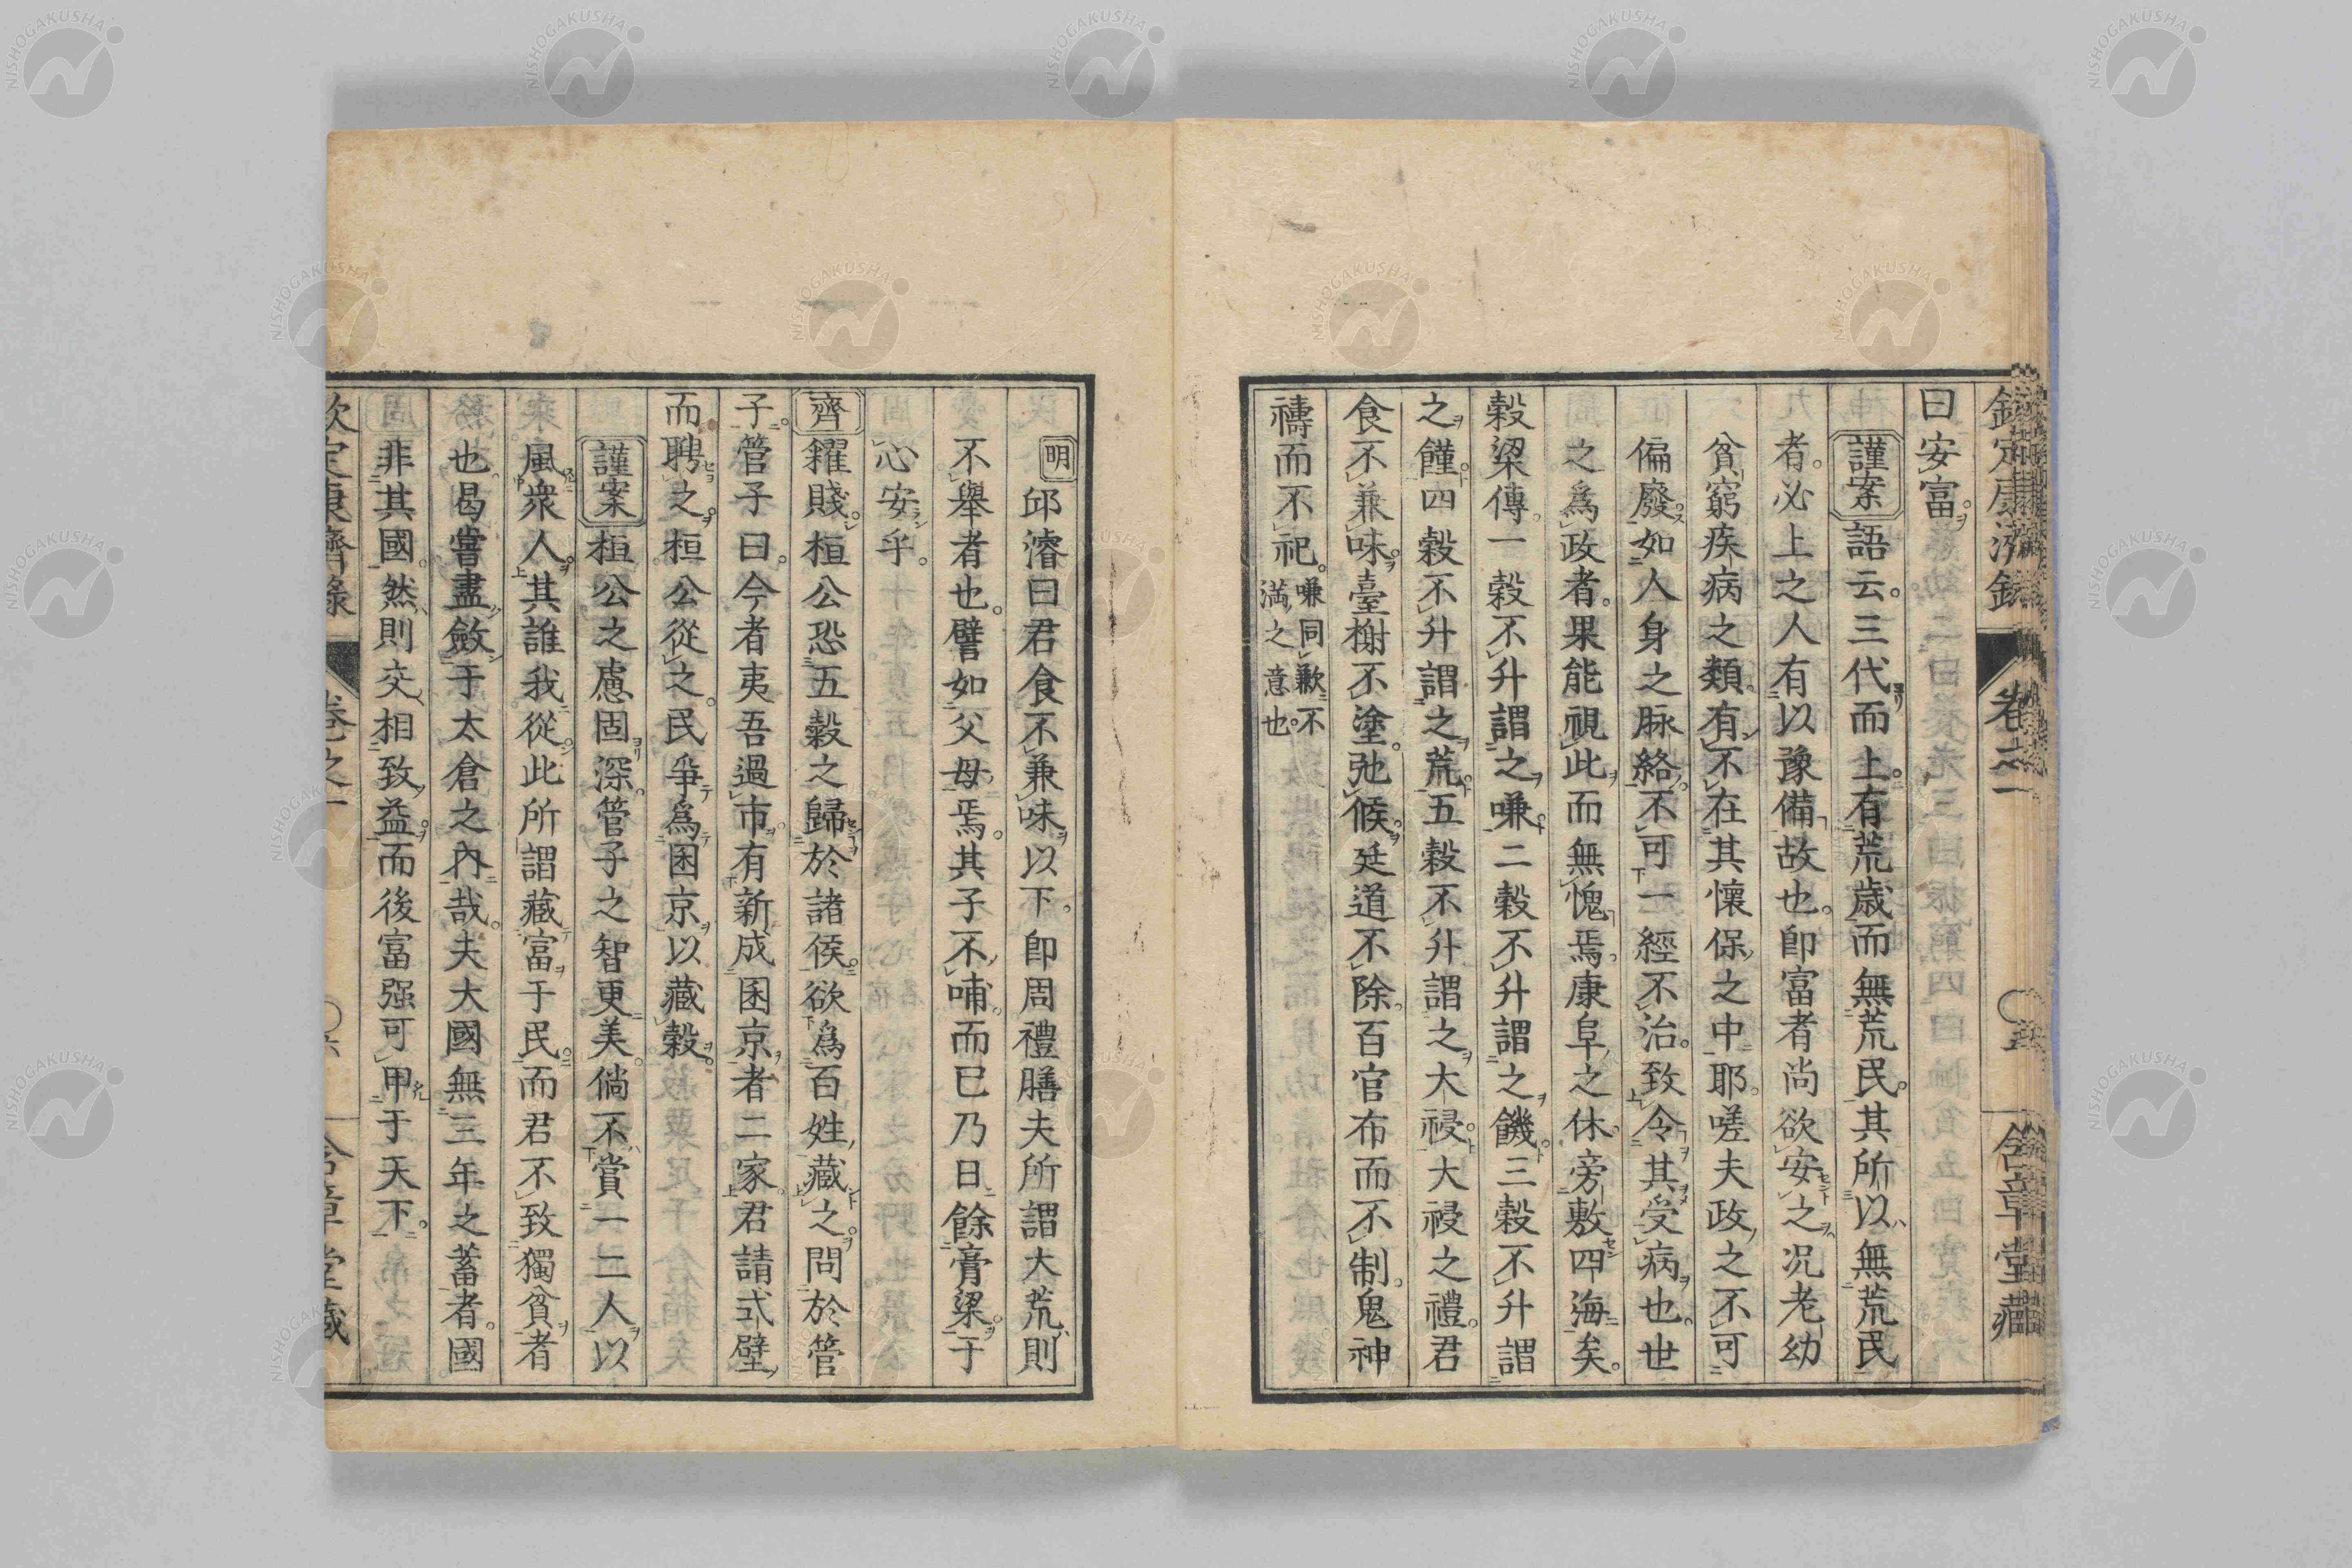 欽定康濟錄 卷之一 五 含章堂藏
曰安富。
謹案 語云。三代而上。有荒歲而無荒民。其所以無荒民
者。必上之人有以豫備故也。卽富者尚欲安之。況老幼
貧窮疾病之類。有不在其懷保之中耶。嗟夫政之不可
偏廢。如人身之脉絡。不可一經不治。致令其受病也。世
之爲政者。果能視此而無愧焉。康阜之休。旁敷四海矣。
穀梁傳。一穀不升謂之嗛。二穀不升謂之饑。三穀不升謂
之饉。四穀不升謂之荒。五穀不升謂之大祲。大祲之禮。君
食不兼味。臺榭不塗。弛候。廷道不除。百官布而不制。鬼神
禱而不祀。嗛同歉不
滿之意也。
明 邱濬曰君食不兼味以下。卽周禮膳夫所謂大荒則
不舉者也。譬如父母焉。其子不哺。而巳乃日餘膏粱。于
心安乎。
齊 糴賤。桓公恐五穀之歸於諸侯。欲爲百姓藏之。問於管
子。管子曰。今者夷吾過市。有新成囷京者二家。君請式璧
而聘之。桓公從之。民爭爲囷京以藏穀。
謹案 桓公之慮固深。管子之智更美。倘不賞一二人以
風衆人。其誰我從。此所謂藏富于民。而君不致獨貧者
也。曷嘗盡斂于太倉之內哉。夫大國無三年之蓄者。國
非其國。然則交相致益。而後富强可甲于天下。
欽定康濟錄 卷之一 六 含章堂藏